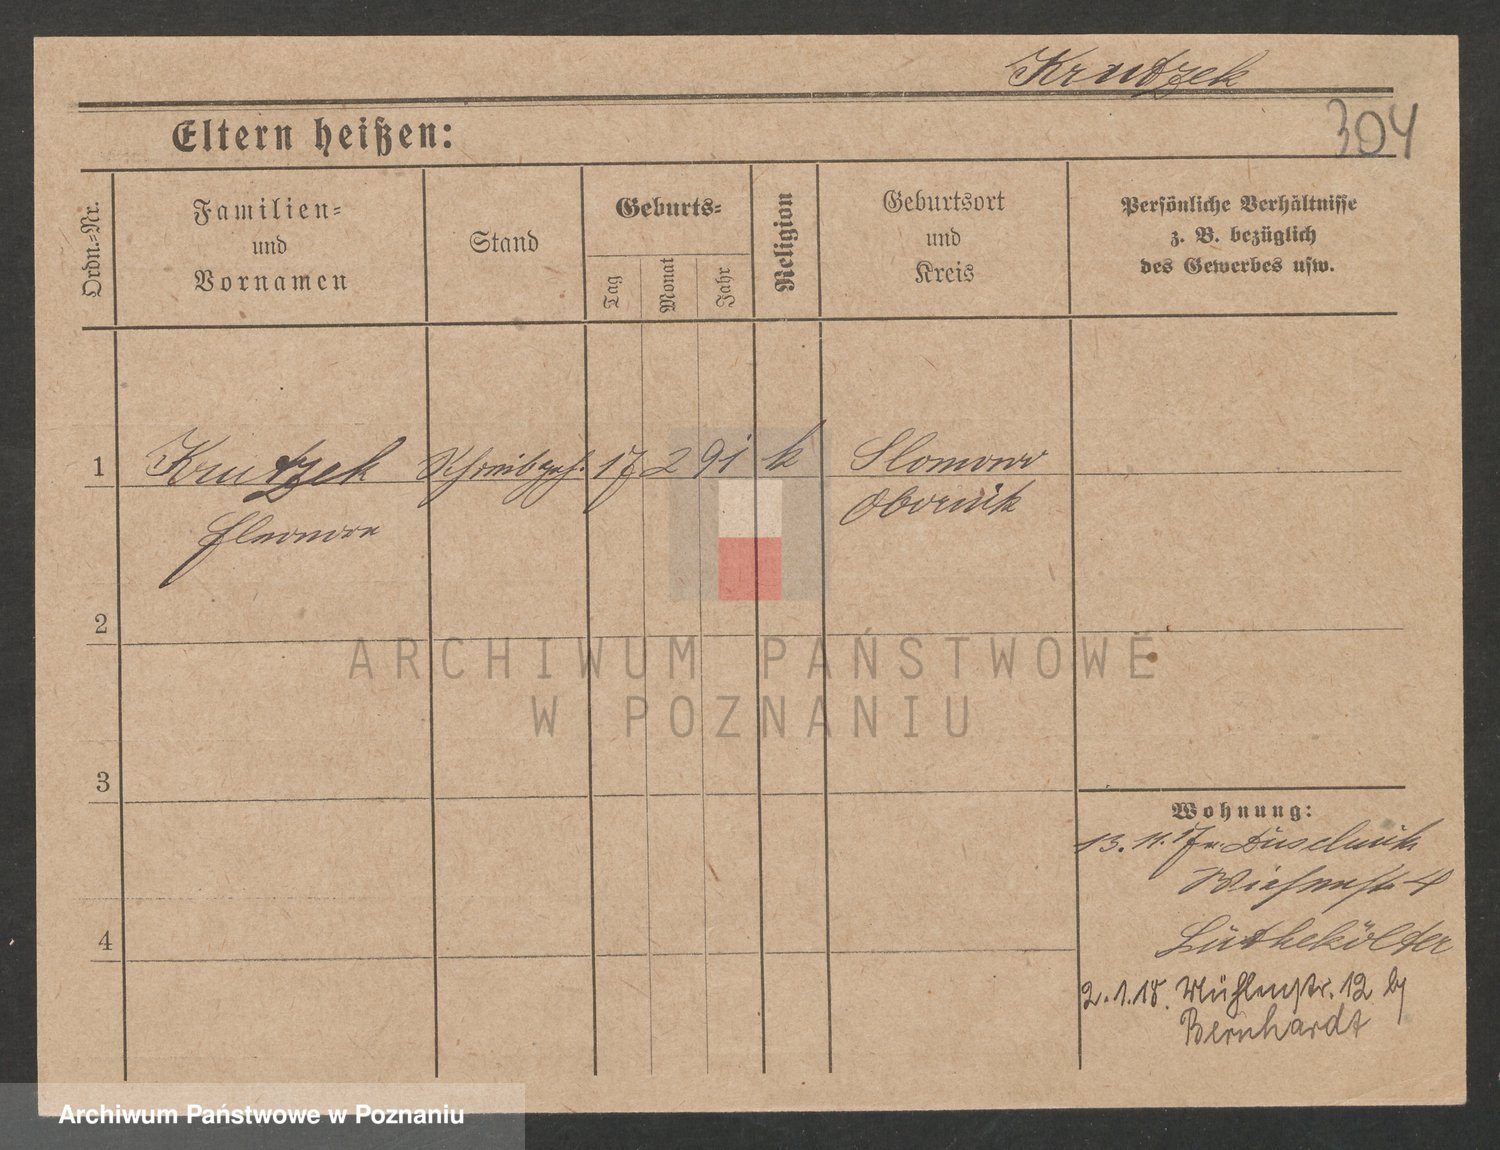 Krutzek
304
Eltern heißen:
Ordn.=Nr.
Familien= und Vornamen
Stand
Geburts=
Tag
Monat
Jahr
Religion
Geburtsort und Kreis
Persönliche Verhältnisse
z. B. bezüglich
des Gewerbes usw.
1 Krutzek Schreibgeh. 17 2 91 k Slomowo
Eleonore Obornik
2
3
4
Wohnung:
13. 11. 17 v.
Wiesenstr. 4
2.1.18. Mühlenstr. 12 bj
Bernhardt
ARCHIWUM PAŃSTWOWE
W POZNANIU
Archiwum Państwowe w Poznaniu